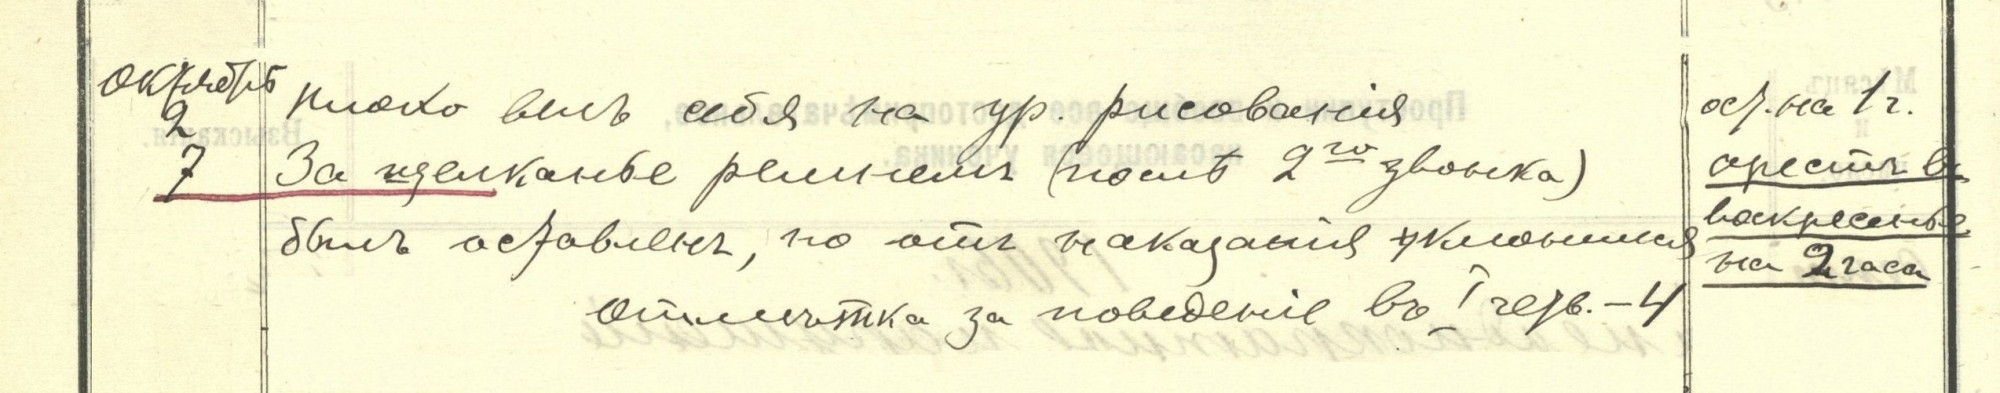 Октябрь
2 плохо велъ себя на ур. рисованія ост. на 1 г.
7 За щелканье ремнемъ (послѣ 2го звонка) арестъ въ
былъ оставленъ, но отъ наказанія уклонился воскресенье
на 2 часа
Отмѣтка за поведеніе въ I четв. – 4